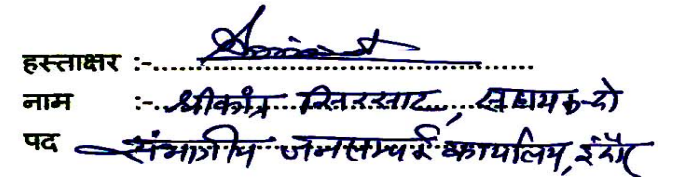 हस्ताक्षर :-..........................................
नाम :- श्रीकांत सिरसाट, सहायक-दो
पद संभागीय जनसम्पर्क कार्यालय, इंदौर